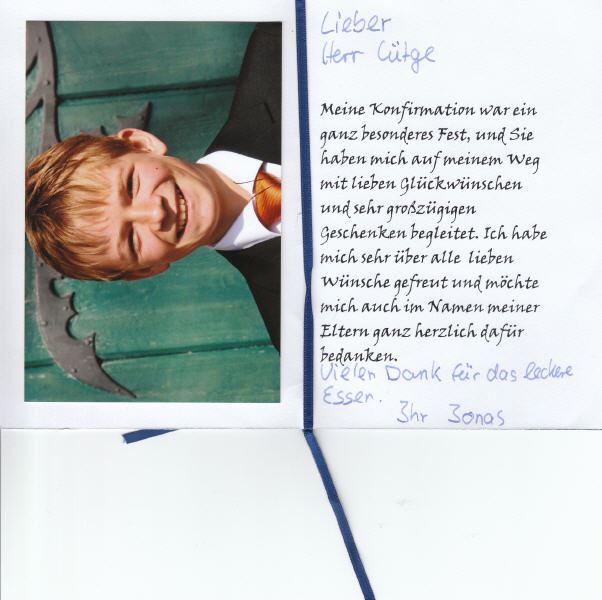 Lieber
Herr Lütge
Meine Konfirmation war ein
ganz besonderes Fest, und Sie
haben mich auf meinem Weg
mit lieben Glückwünschen
und sehr großzügigen
Geschenken begleitet. Ich habe
mich sehr über alle lieben
Wünsche gefreut und möchte
mich auch im Namen meiner
Eltern ganz herzlich dafür
bedanken.
Vielen Dank für das leckere
Essen.
Ihr Jonas